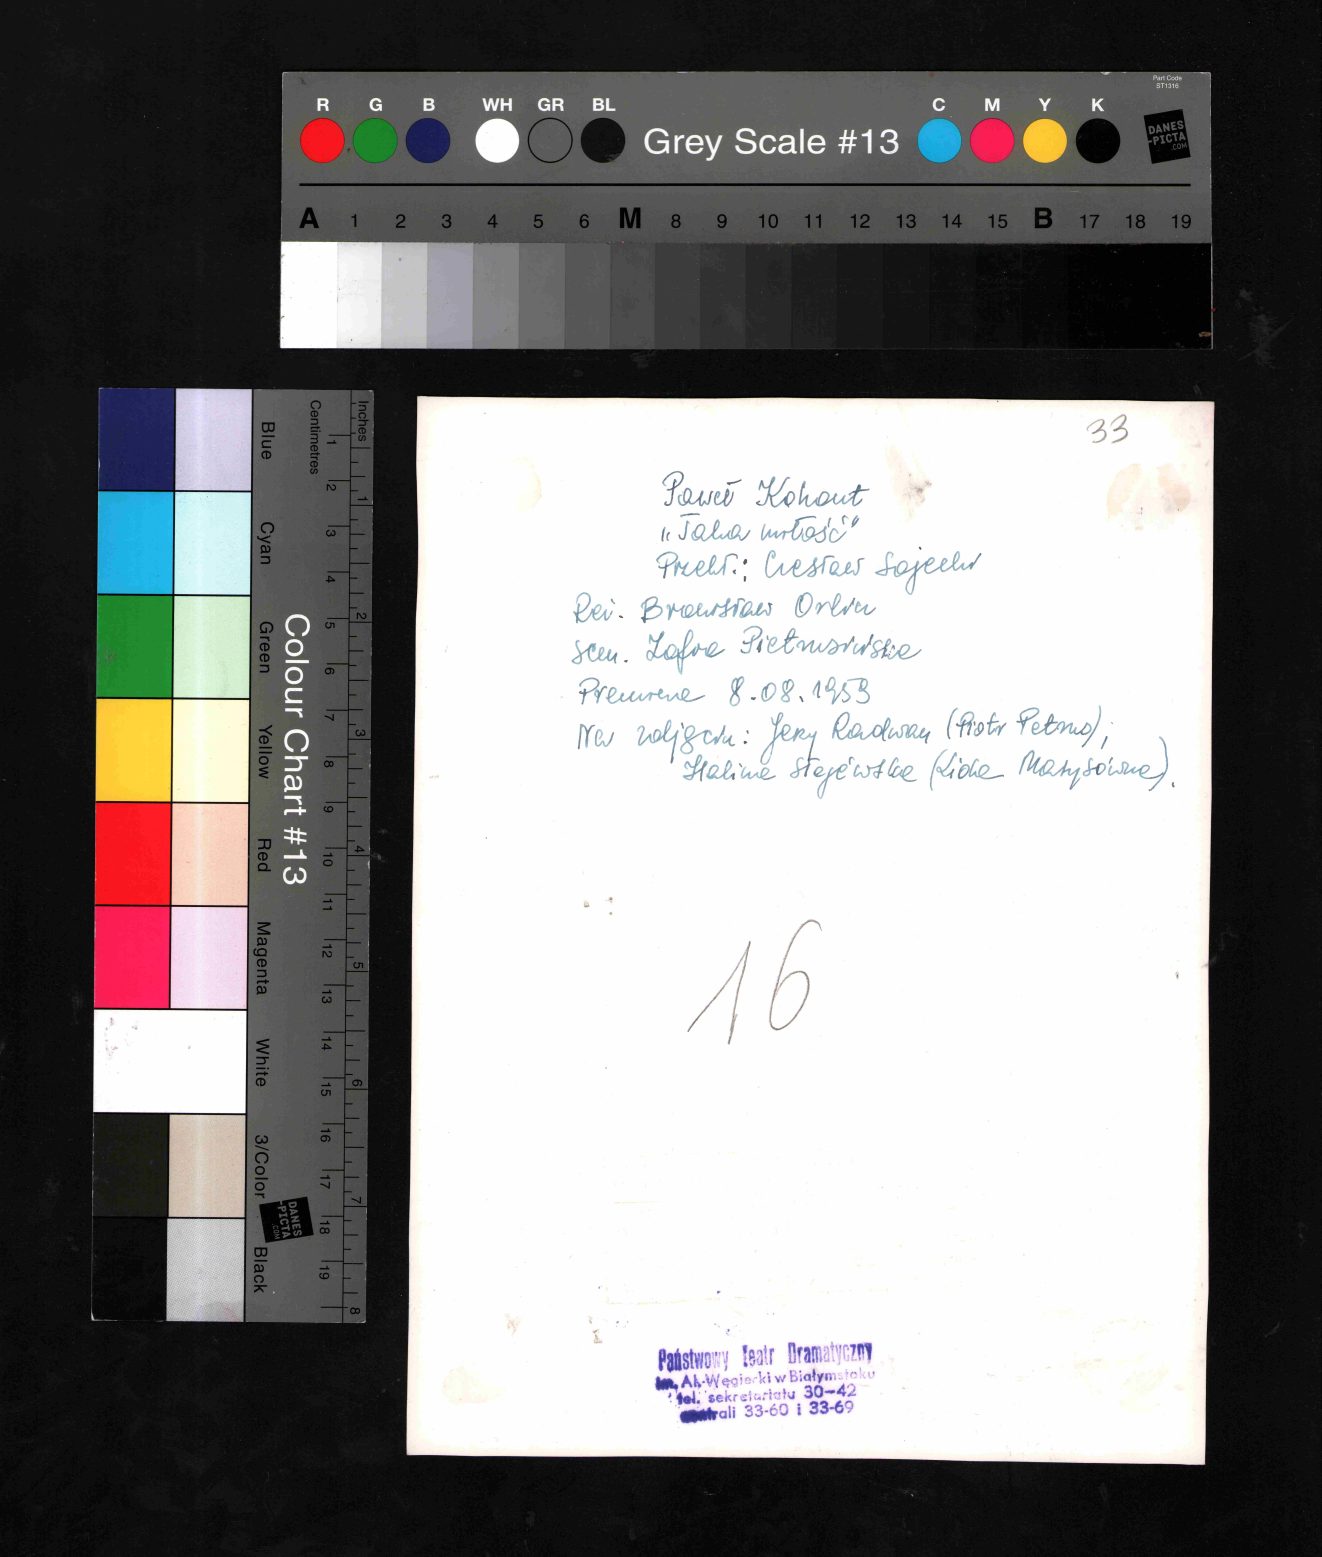 Part Code
ST1316
R G B WH GR BL Grey Scale #13 C M Y K
DANES
-PICTA
.COM
A 1 2 3 4 5 6 M 8 9 10 11 12 13 14 15 B 17 18 19
Inches
Centimetres
1 2 3 4 5 6 7 8 9 10 11 12 13 14 15 16 17 18 19
1 2 3 4 5 6 7 8
Colour Chart #13
Blue
Cyan
Green
Yellow
Red
Magenta
White
3/Color
Black
DANES
-PICTA
.COM
33
Paweł Kohout
„Taka miłość"
Przekł.: Czesław Sojecki
Reż. Bronisław Orlicz
scen. Zofia Pietrusińska
Premiera 8.08.1959
Na zdjęciu: Jerzy Radwan (Piotr Petrus),
Halina Stajewska (Lida Matysówna).
16
Państwowy Teatr Dramatyczny
im. Al. Węgierki w Białymstoku
tel. sekretariatu 30-42
centrali 33-60 i 33-69